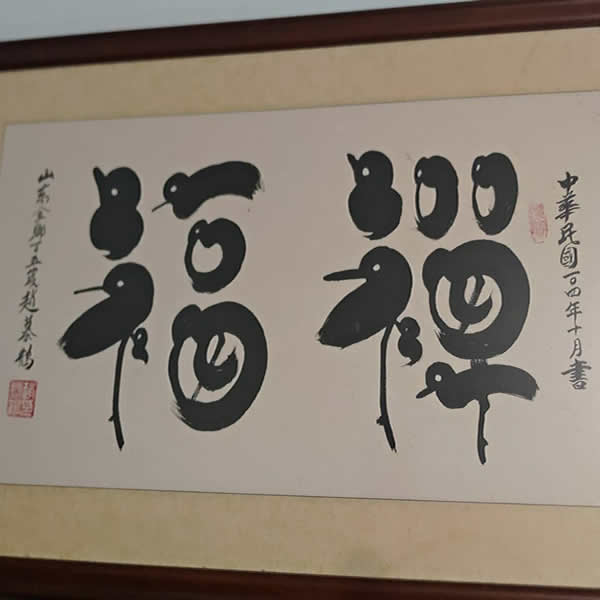 中華民國一〇四年十月書
禪福
山東金鄉叟趙慕鶴